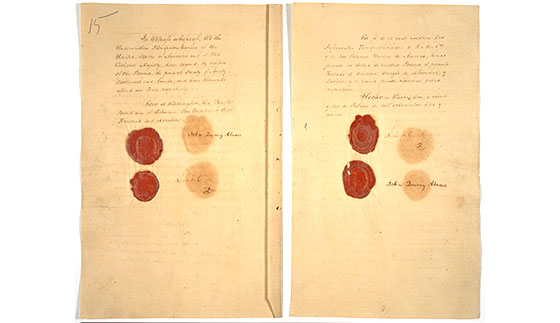 15
In Witness whereof, We the
Undersigned Plenipotentiaries of the
United States of America and of His
Catholic Majesty, have signed, by virtue
of Our Powers, the present Treaty of Amity,
Settlement and Limits, and have thereunto
affixed our Seals respectively.
Done at Washington, this Twenty
Second day of February, One Thousand Eight
Hundred and Nineteen.
John Quincy Adams
En fe de lo cual nosotros los
Infrascritos Plenipotenciarios de S. M. Ca.
y de los Estados Unidos de America, hemos
firmado en virtud de nuestros Poderes el presente
Tratado de Amistad, Arreglo de diferencias, y
Limites
Hecho en Washington, á veinte
y dos de Febrero de mil ochocientos diez y
nueve.
John Quincy Adams